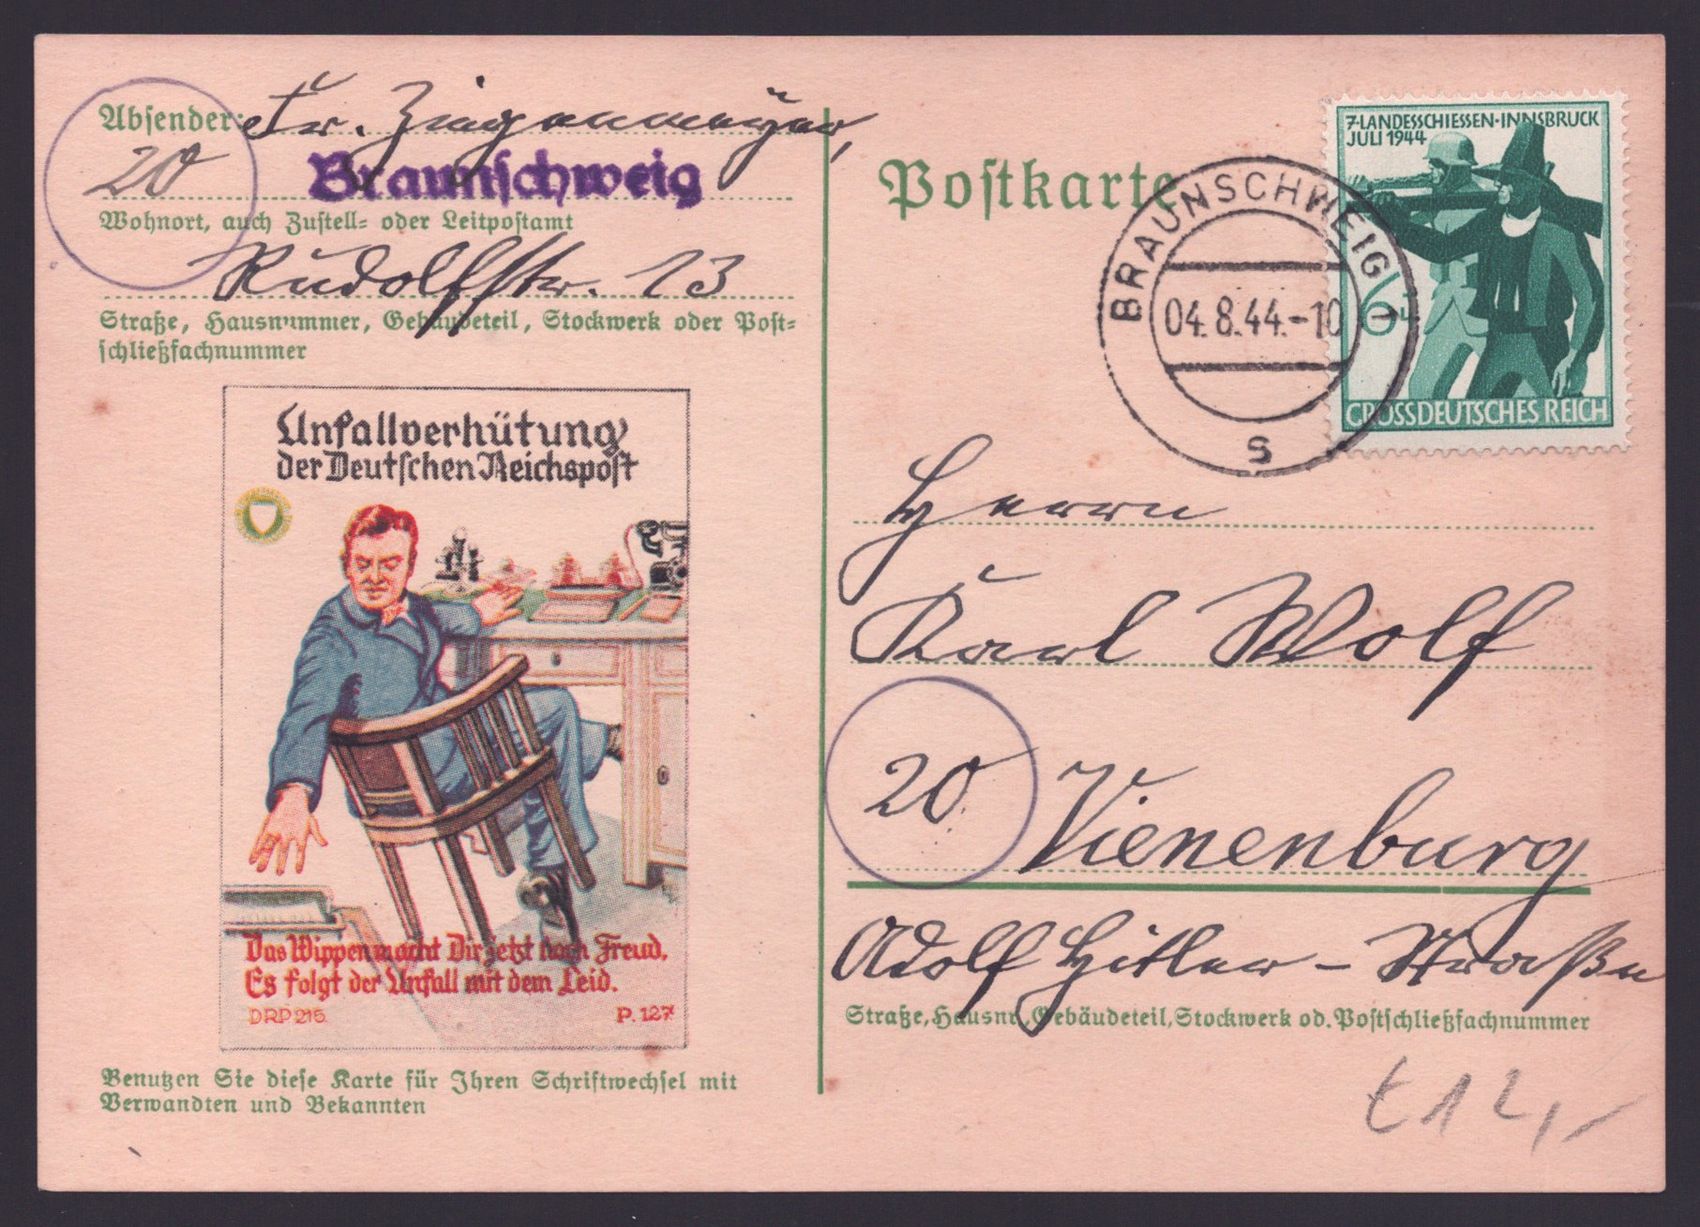 Absender: Fr. Ziegenmeyer,
20 Braunschweig
Wohnort, auch Zustell- oder Leitpostamt
Rudolfstr. 13
Straße, Hausnummer, Gebäudeteil, Stockwerk oder Post-
schließfachnummer
Unfallverhütung
der Deutschen Reichspost
Das Wippen macht Dir jetzt noch Freud,
Es folgt der Unfall mit dem Leid.
DRP 215 P. 127
Benutzen Sie diese Karte für Ihren Schriftwechsel mit
Verwandten und Bekannten
Postkarte
BRAUNSCHWEIG
04.8.44.-10
s
7·LANDESSCHIESSEN·INNSBRUCK
JULI 1944
6
GROSSDEUTSCHES REICH
Herrn
Karl Wolf
20 Vienenburg
Adolf Hitler-Straße
Straße, Hausnr., Gebäudeteil, Stockwerk od. Postschließfachnummer